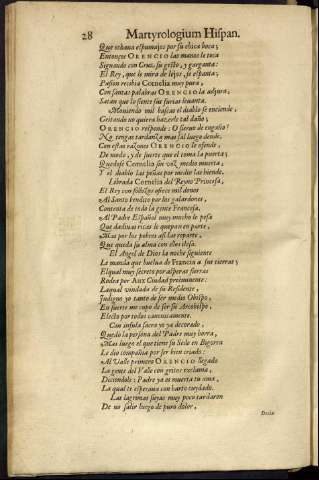 28
Martyrologium Hispan.
Que echana espumajos por su chica boca;
Entonçes ORENCIO las manos le toca
Signando con Cruz, su gesto, y garganta:
El Rey, que le mira de lexos, se espanta;
Passion recibia Cornelia muy pura,
Con santas palabras ORENCIO la adjura,
Satan que lo siente sus furias leuanta.
Mouiendo mil bascas el diablo se enciende,
Gritando no quiera hazerle tal daño;
ORENCIO responde: O sierue de engaño!
No tengas tardança mas sal luego dende:
Con estas razones ORENCIO le ofende,
De modo, y de suerte que el toma la puerta;
Quedose Cornelia sin voz medio muerta,
Y el diablo las peñas por medio las hiende.
Librada Cornelia del Reyno Princesa,
El Rey con sollozos ofrece mil dones
Al Santo bendito por los galardones,
Contenta de todo la gente Francesa,
Al Padre Español muy mucho le pesa
Que de sus ricas le quepan en parte,
Mas por los pobres assi las reparte,
Que queda su alma con ellos ilesa.
El Angel de Dios la noche siguiente
Le manda que buelua de Francia a sus tierras;
El qual muy secreto por asperas sierras
Rodea por Aux Ciudad preeminente:
La qual viudada de su Residente,
Indigno yo tanto de ser medio Obispo,
En fuerte me cupo de ser su Arçobispo,
Electo por todos canonicamente.
Con insula sacra yo ya decorado,
Quedo la persona del Padre muy horra,
Mas luego el que tiene su Sede en Bigorra
Le dio compañia por ser bien criado:
Al Valle primero ORENCIO llegado
La gente del Valle con gritos reclama,
Diziendole: Padre ya es muerta tu ama,
La qual te esperaua con harto cuydado.
Las lagrimas suyas muy poco tardaron
De no salir luego de puro dolor,